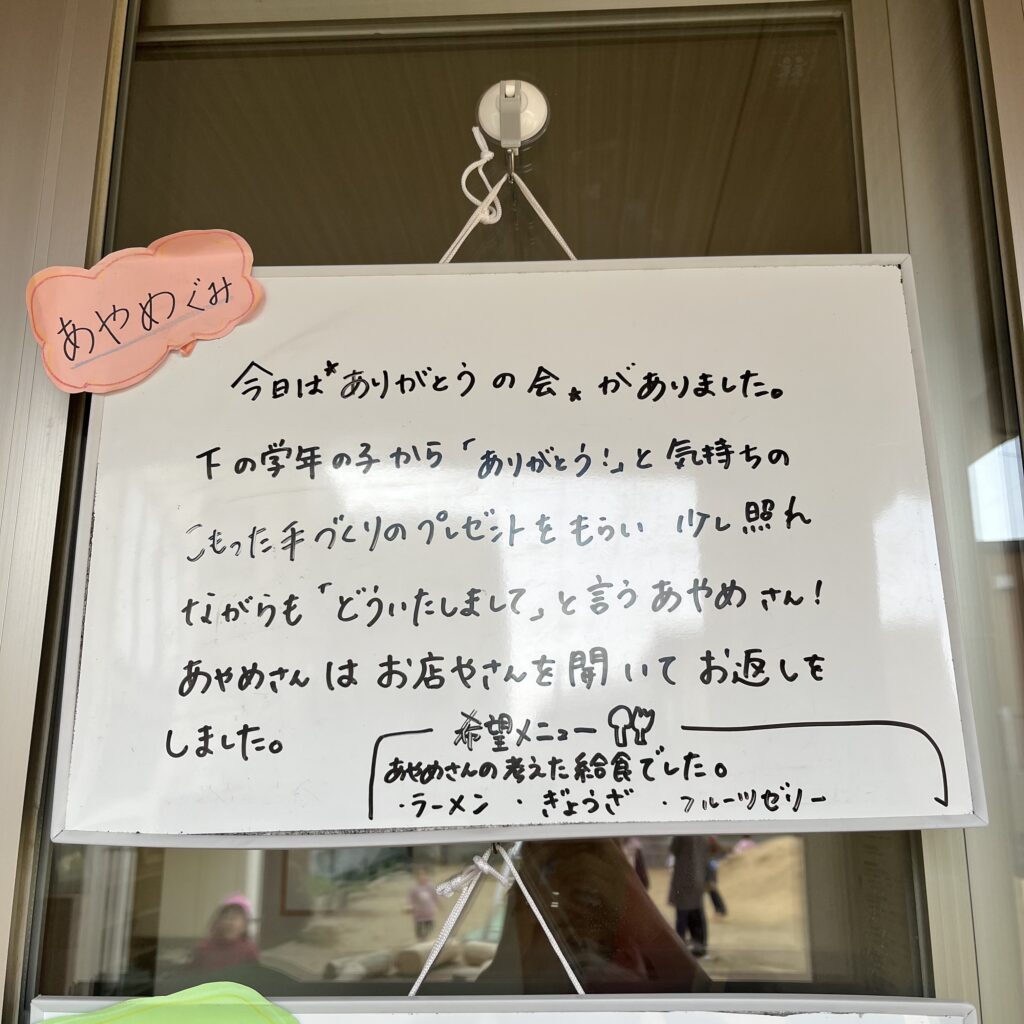 あやめぐみ
今日は*ありがとうの会*がありました。
下の学年の子から「ありがとう!」と気持ちの
こもった手づくりのプレゼントをもらい 少し照れ
ながらも「どういたしまして」と言うあやめさん!
あやめさんは お店やさんを開いて お返しを
しました。
希望メニュー
あやめさんの考えた給食でした。
・ラーメン ・ぎょうざ ・フルーツゼリー